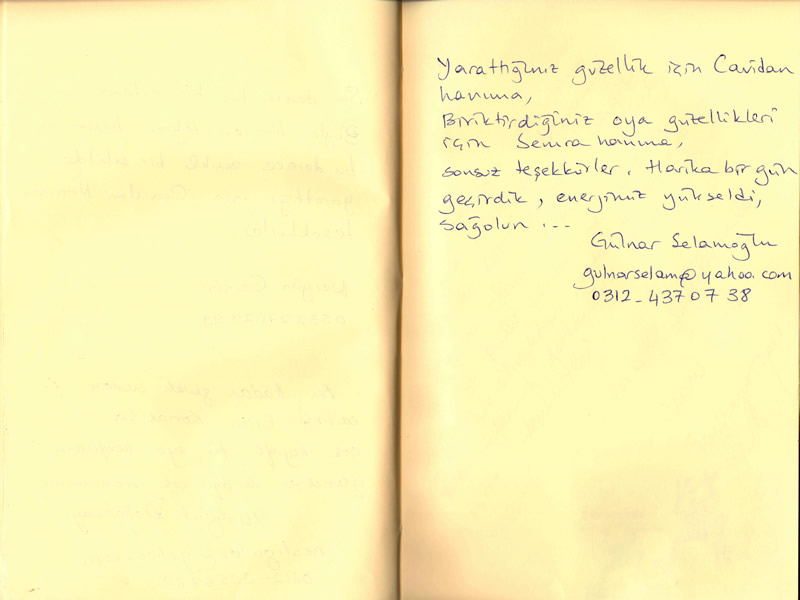 Yarattığınız güzellik için Cavidan
hanıma,
Biriktirdiğiniz oya güzellikleri
için Semra hanıma,
sonsuz teşekkürler. Harika bir gün
geçirdik, enerjimiz yükseldi,
sağolun ...
Gülnar Selamoğlu
gulnarselam@yahoo.com
0312-437 07 38